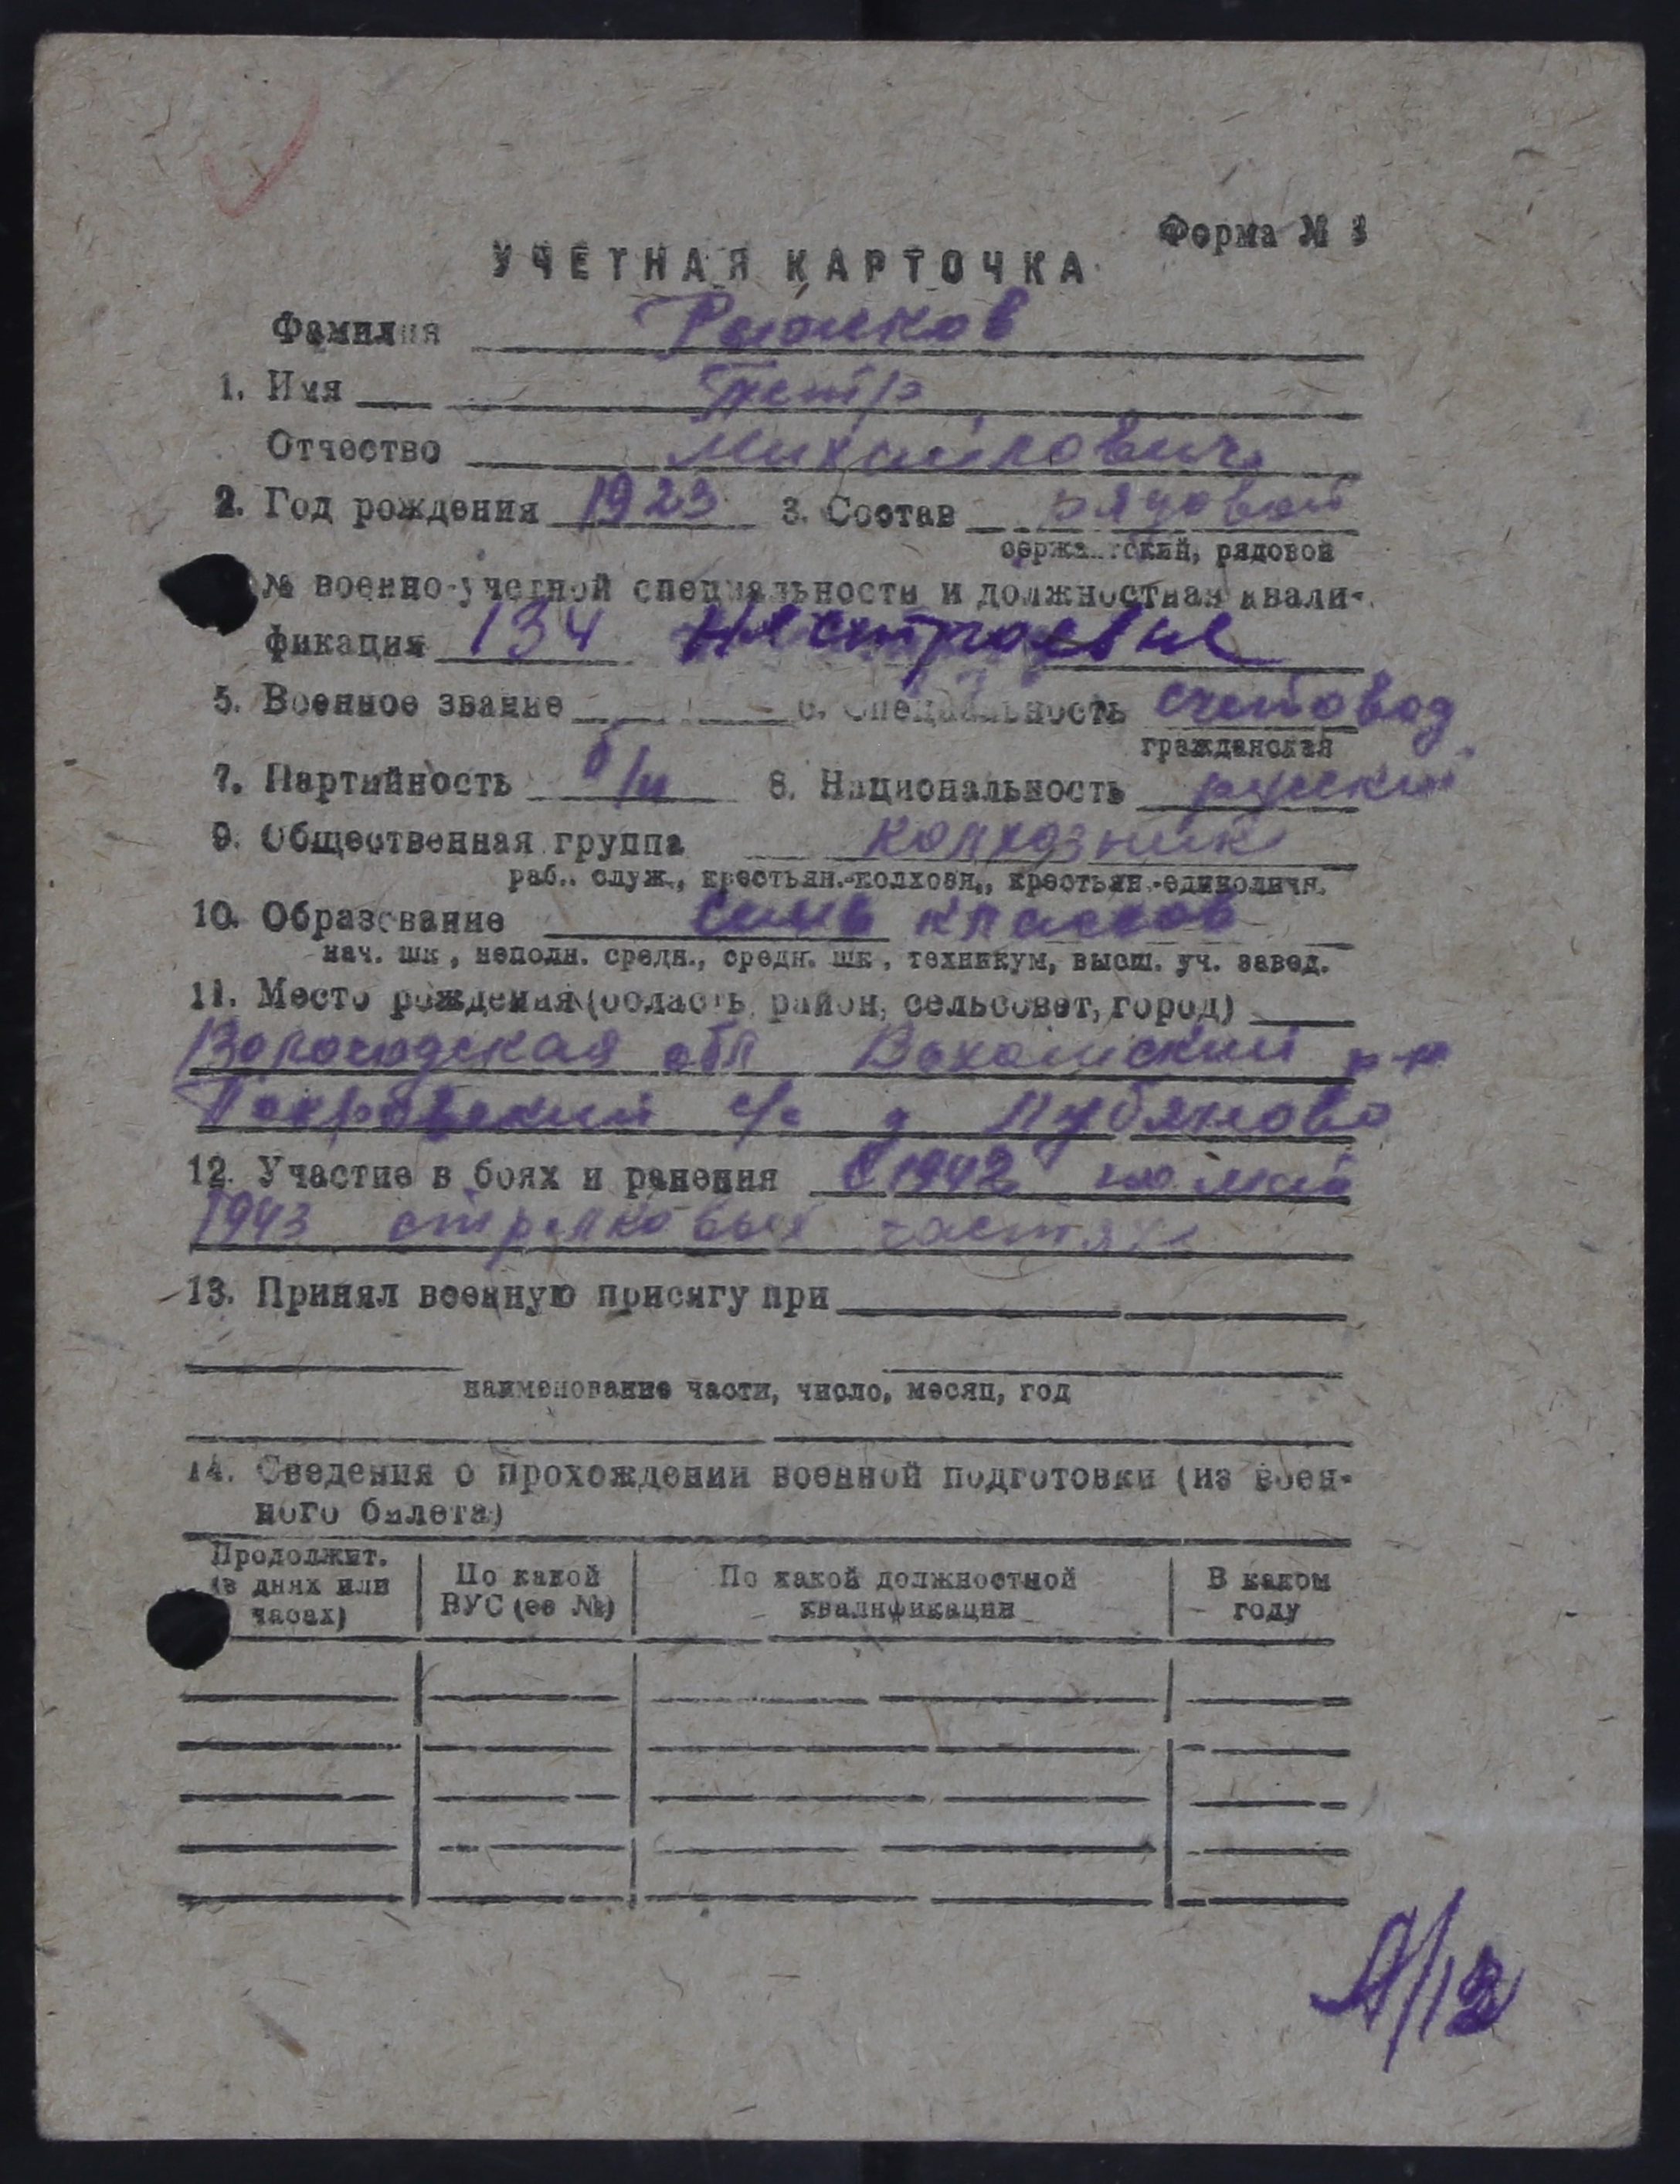 Форма № 3
УЧЕТНАЯ КАРТОЧКА
Фамилия
1. Имя Петр
Отчество Михайлович
2. Год рождения 1923 3. Состав рядовой
сержантский, рядовой
№ военно-учетной специальности и должностная квали-
фикация 134 нестроевые
5. Военное звание 6. Специальность счетовод
гражданская
7. Партийность б/п 8. Национальность русский
9. Общественная группа колхозник
раб., служ., крестьян.-колхозн., крестьян.-единоличн.
10. Образование семь классов
нач. шк., неполн. средн., средн. шк., техникум, высш. уч. завед.
11. Место рождения (область, район, сельсовет, город)
Вологодская обл Вохомский р-н
Покровский с/с д Лубяново
12. Участие в боях и ранения С 1942 по май
1943 стрелковых частях
13. Принял военную присягу при
наименование части, число, месяц, год
14. Сведения о прохождении военной подготовки (из воен-
ного билета)
Продолжит. (в днях или часах) По какой ВУС (ее №) По какой должностной квалификации В каком году